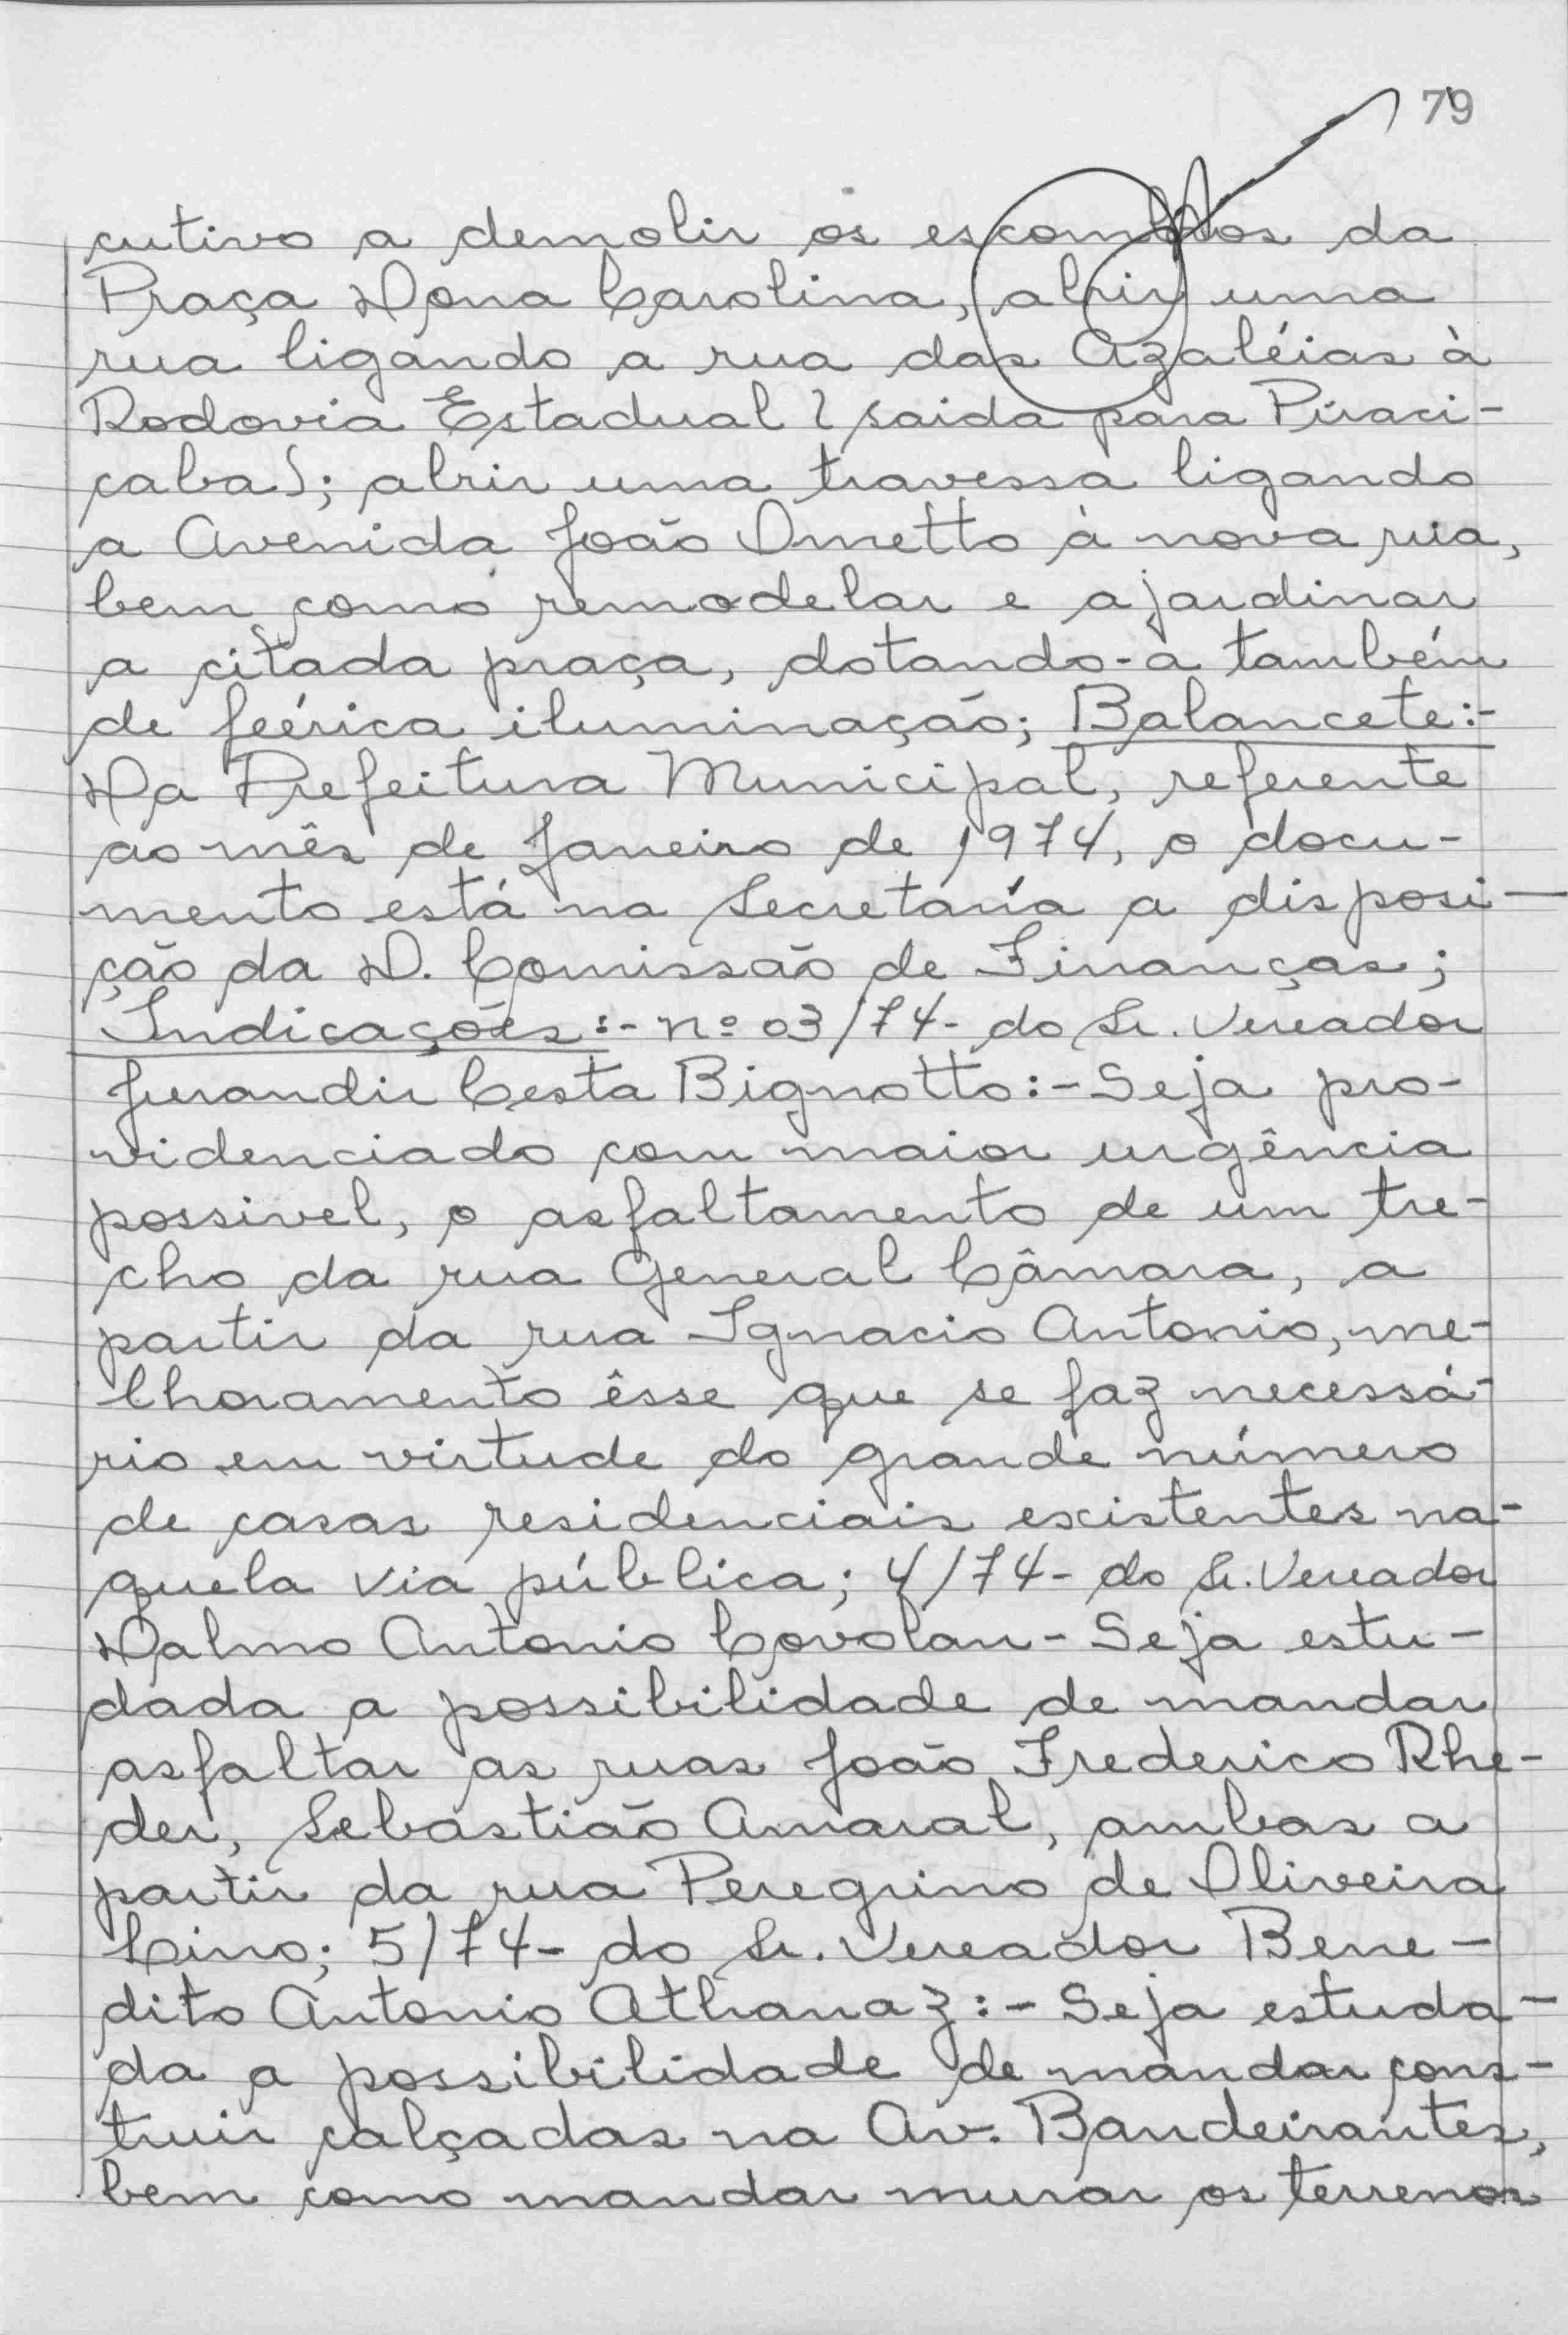 79
cutivo a demolir os escombros da
Praça Dona Carolina, abrir uma
rua ligando a rua das Azaléias à
Rodovia Estadual (saida para Piraci-
caba); abrir uma travessa ligando
a Avenida João Ometto à nova rua,
bem como remodelar e ajardinar
a citada praça, dotando-a também
de feérica iluminação; Balancete:-
Da Prefeitura Municipal, referente
ao mês de Janeiro de 1974, o docu-
mento está na Secretaría a disposi-
ção da D. Comissão de Finanças;
Indicações:- nº 03/74- do Sr. Vereador
Jurandir Cesta Bignotto:- Seja pro-
videnciado com maior urgência
possivel, o asfaltamento de um tre-
cho da rua General Câmara, a
partir da rua Ignacio Antonio, me-
lhoramento êsse que se faz necessá-
rio em virtude do grande número
de casas residenciais existentes na-
quela via pública; 4/74- do Sr. Vereador
Dalmo Antonio Covolan- Seja estu-
dada a possibilidade de mandar
asfaltar as ruas João Frederico Rhe-
der, Sebastião Amaral, ambas a
partir da rua Peregrino de Oliveira
Lino; 5/74- do Sr. Vereador Bene-
dito Antonio Athanaz:- Seja estuda-
da a possibilidade de mandar cons-
truir calçadas na Av. Bandeirantes,
bem como mandar murar os terrenos